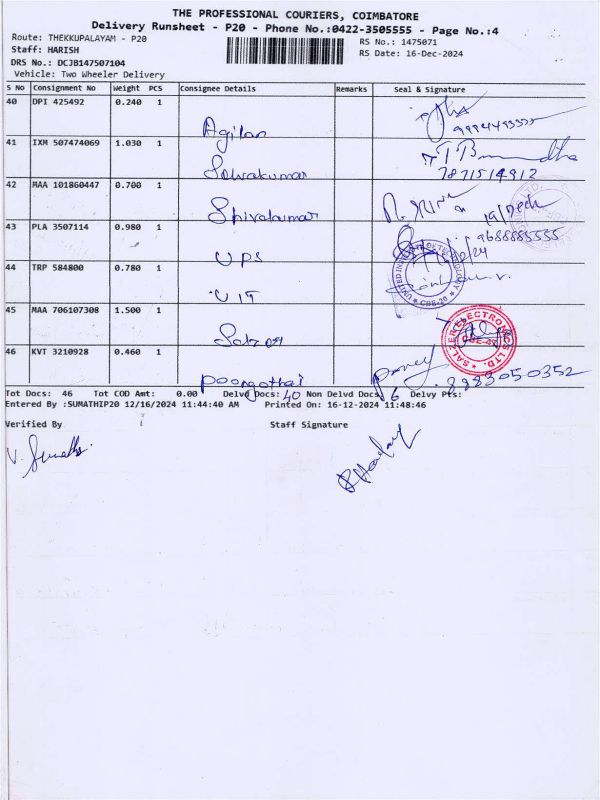 THE PROFESSIONAL COURIERS, COIMBATORE
Delivery Runsheet - P20 - Phone No.:0422-3505555 - Page No.:4
Route: THEKKUPALAYAM - P20
RS No.: 1475071
Staff: HARISH
RS Date: 16-Dec-2024
DRS No.: DCJB147507104
Vehicle: Two Wheeler Delivery
S No Consignment No Weight PCS Consignee Details Remarks Seal & Signature
40 DPI 425492 0.240 1
Agilan
41 IXM 507474069 1.030 1
Selvakumar
7871514912
42 MAA 101860447 0.700 1
Shivakumar
43 PLA 3507114 0.980 1
9688885555
UPS
44 TRP 584800 0.780 1
UIT
UNITED INSTITUTE OF TECHNOLOGY * CBE-20 *
45 MAA 706107308 1.500 1
Salzer
SALZER ELECTRONICS LTD.
46 KVT 3210928 0.460 1
Poongothai
8883050352
Tot Docs: 46 Tot COD Amt: 0.00 Delvd Docs: 40 Non Delvd Docs: 6 Delvy Pts:
Entered By :SUMATHIP20 12/16/2024 11:44:40 AM Printed On: 16-12-2024 11:48:46
Verified By Staff Signature
V. Sumathi